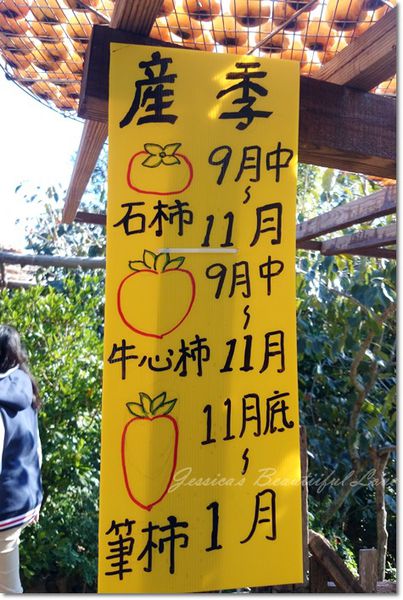 產季
9月中
~
11月
石柿
9月中
~
11月
牛心柿
11月底
~
1月
筆柿
Jessica's Beautiful Love